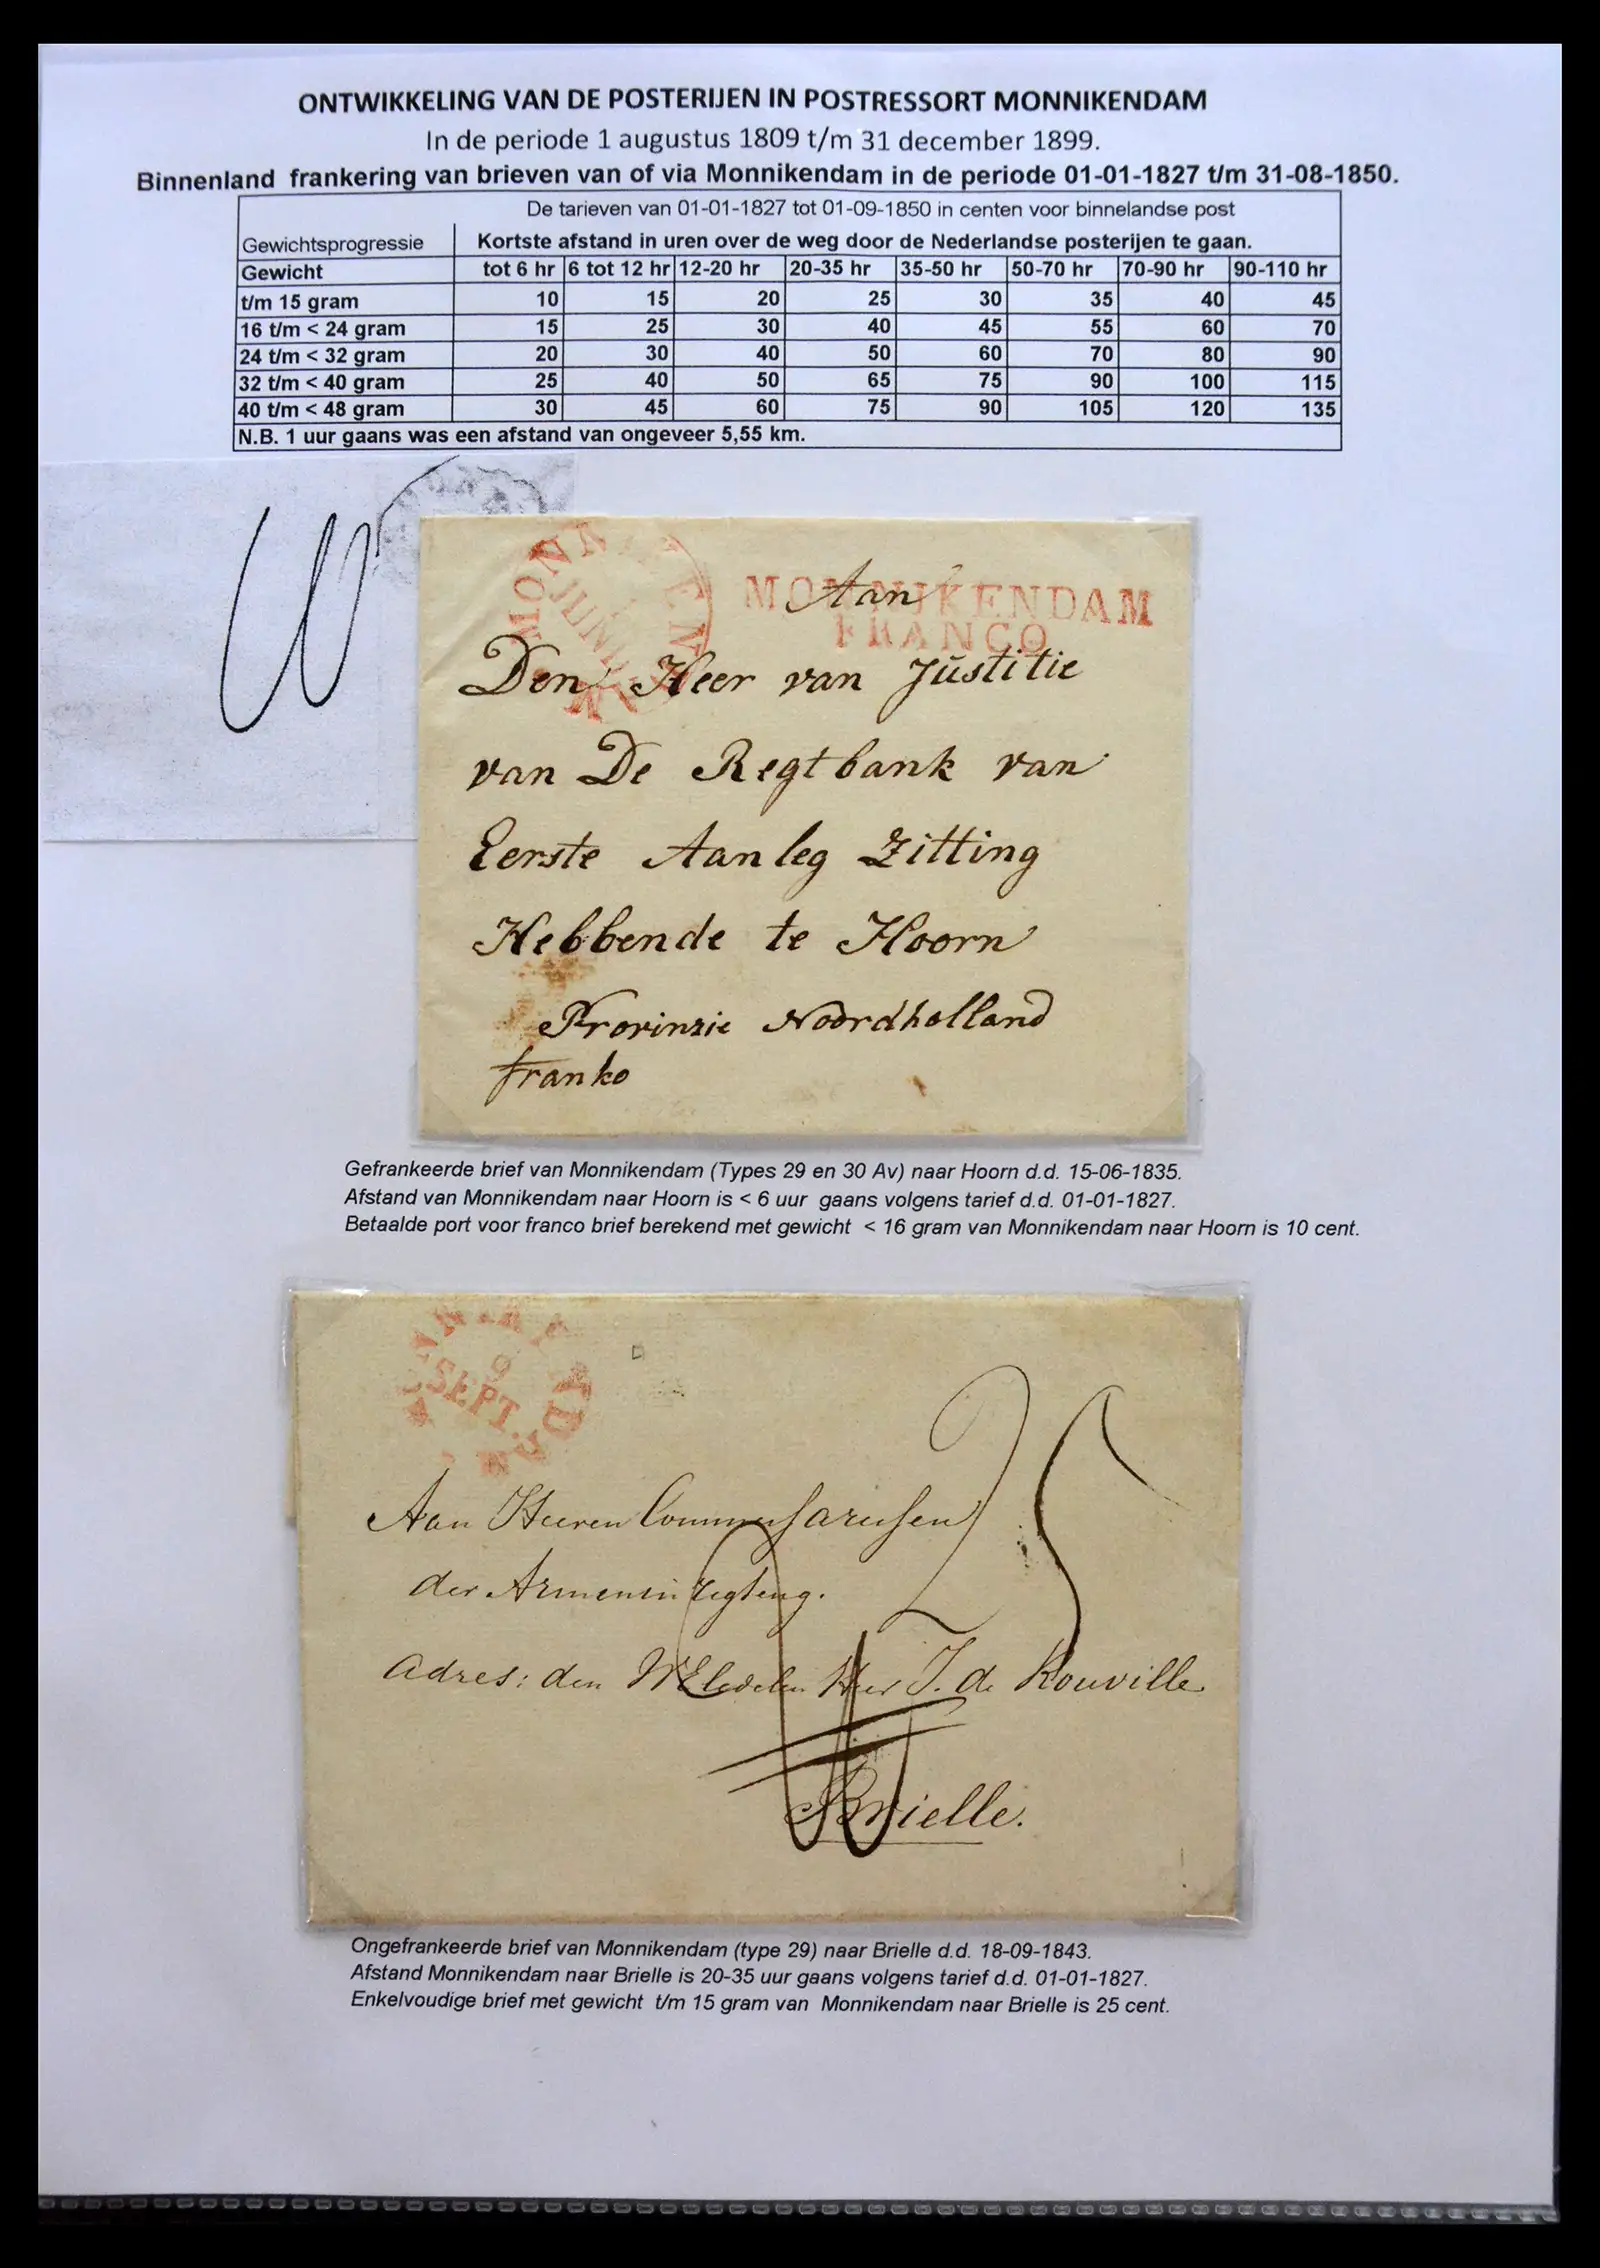 ONTWIKKELING VAN DE POSTERIJEN IN POSTRESSORT MONNIKENDAM
In de periode 1 augustus 1809 t/m 31 december 1899.
Binnenland frankering van brieven van of via Monnikendam in de periode 01-01-1827 t/m 31-08-1850.
De tarieven van 01-01-1827 tot 01-09-1850 in centen voor binnelandse post
Gewichtsprogressie Kortste afstand in uren over de weg door de Nederlandse posterijen te gaan.
Gewicht tot 6 hr 6 tot 12 hr 12-20 hr 20-35 hr 35-50 hr 50-70 hr 70-90 hr 90-110 hr
t/m 15 gram 10 15 20 25 30 35 40 45
16 t/m < 24 gram 15 25 30 40 45 55 60 70
24 t/m < 32 gram 20 30 40 50 60 70 80 90
32 t/m < 40 gram 25 40 50 65 75 90 100 115
40 t/m < 48 gram 30 45 60 75 90 105 120 135
N.B. 1 uur gaans was een afstand van ongeveer 5,55 km.
JUNY
MONNIKENDAM
FRANCO
Aan
Den Heer van Justitie
van De Regtbank van
Eerste Aanleg Zitting
Hebbende te Hoorn
Provinzie Noordholland
franko
Gefrankeerde brief van Monnikendam (Types 29 en 30 Av) naar Hoorn d.d. 15-06-1835.
Afstand van Monnikendam naar Hoorn is < 6 uur gaans volgens tarief d.d. 01-01-1827.
Betaalde port voor franco brief berekend met gewicht < 16 gram van Monnikendam naar Hoorn is 10 cent.
9
SEPT.
25
Aan Heeren Commissarissen
der
Adres: den Heer J. de Rouville
Brielle.
Ongefrankeerde brief van Monnikendam (type 29) naar Brielle d.d. 18-09-1843.
Afstand Monnikendam naar Brielle is 20-35 uur gaans volgens tarief d.d. 01-01-1827.
Enkelvoudige brief met gewicht t/m 15 gram van Monnikendam naar Brielle is 25 cent.